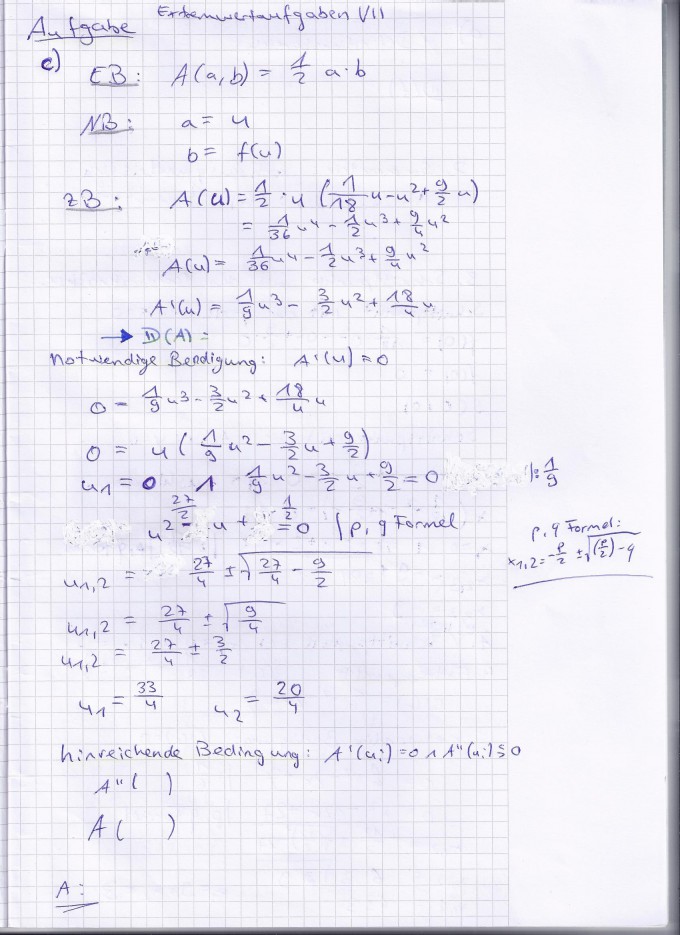 Extremwertaufgaben VII
Aufgabe
c) EB: A(a,b) = 1/2 a·b
NB: a = u
b = f(u)
ZB: A(u) = 1/2 · u (1/18 u - u² + 9/2 u)
= 1/36 u⁴ - 1/2 u³ + 9/4 u²
A(u) = 1/36 u⁴ - 1/2 u³ + 9/4 u²
A'(u) = 1/9 u³ - 3/2 u² + 18/4 u
→ D(A) =
Notwendige Bendigung: A'(u) = 0
0 = 1/9 u³ - 3/2 u² + 18/4 u
0 = u (1/9 u² - 3/2 u + 9/2)
u1 = 0 ∧ 1/9 u² - 3/2 u + 9/2 = 0 |: 1/9
u² - 27/2 u + 1/2 = 0 | p,q Formel
p,q Formel:
x1,2 = -p/2 ± √((p/2) - q
u1,2 = 27/4 ± √(27/4 - 9/2)
u1,2 = 27/4 ± √(9/4)
u1,2 = 27/4 ± 3/2
u1 = 33/4 u2 = 20/4
hinreichende Bedingung: A'(ui) = 0 ∧ A''(ui) ≶ 0
A''( )
A( )
A: